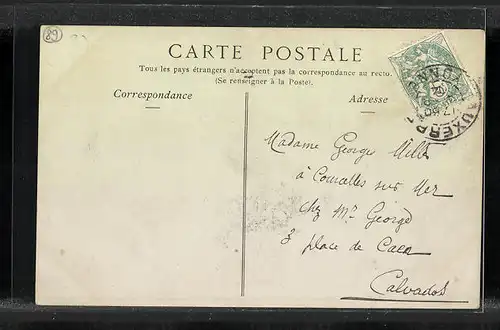 89
CARTE POSTALE
Tous les pays étrangers n'acceptent pas la correspondance au recto.
(Se renseigner à la Poste).
Correspondance
Adresse
AUXERRE
YONNE
Madame George
à Courcelles sur Mer
chez Mr George
3 place de Caen
Calvados